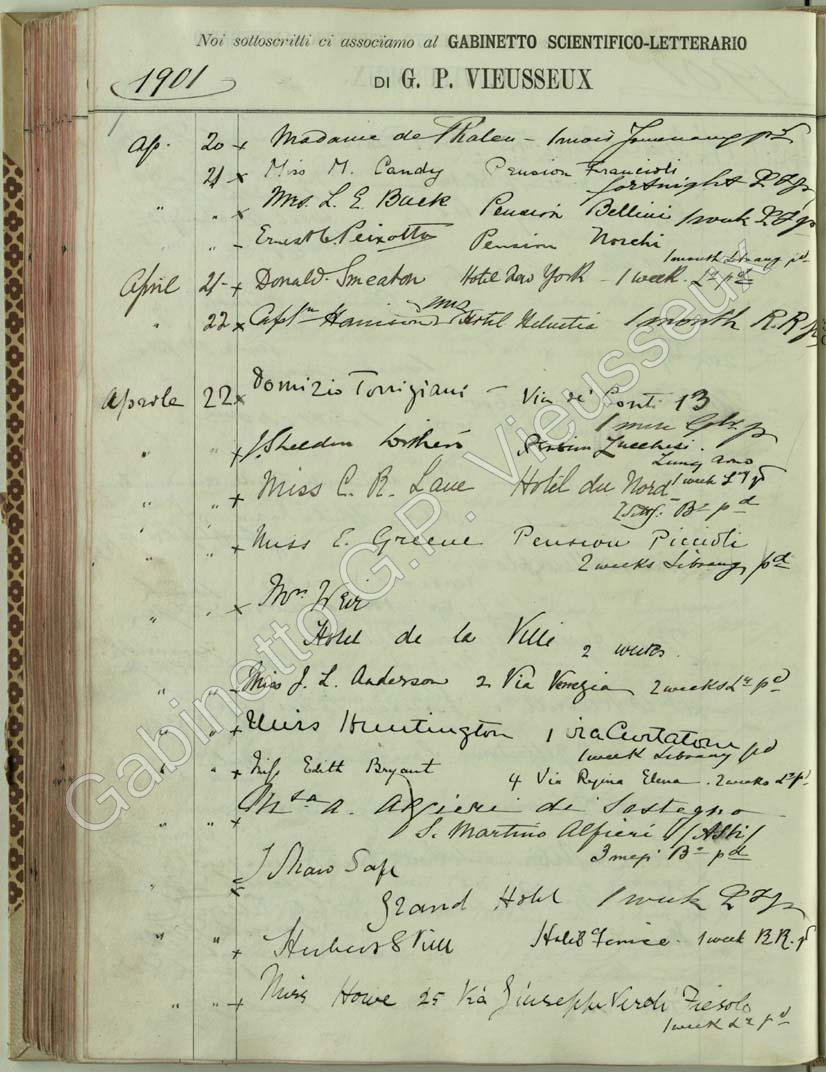 Noi sottoscritti ci associamo al GABINETTO SCIENTIFICO-LETTERARIO
1901
DI G. P. VIEUSSEUX
Ap. 20 x Madame de Thalen - 1 mois
21 x Miss M. Candy Pension Francioli
fortnight
" " x Mrs. L. E. Buck Pension Bellini 1 week
" " - Ernest C Peixotto Pension Norchi
1 month Library pd
April 21 - x Donald Smeaton Hotel New York - 1 week. Ly pd
" 22 x Captn Harrison Hotel Helvetia 1 month R.R
Aprile 22 x Domizio Torrigiani - Via de' Conti 13
1 mese
" " x J. Sheldon Pension Lucchesi.
Lung'arno
" " x Miss C. R. Lane Hotel du Nord 1 week
pd
" " x Miss E. Greene Pension Piccioli
2 weeks Library pd
" " x Mrs Weir
Hotel de la Ville 2 weeks.
" " - Miss J. L. Anderson 2 Via Venezia 2 weeks Ly pd
" " x Miss Huntington 1 via Curtatone
1 week Library pd
" " x Miss Edith Bryant 4 Via Regina Elena. 2 weeks
" " x Alfieri di Sostegno
S. Martino Alfieri (Asti)
3 mesi pd
" x J Shaw
Grand Hotel 1 week
" " x Hotel Fenice. 1 week R.R.
" " x Miss Howe 25 Via Giuseppe Verdi Fiesole
1 week Ly pd
Gabinetto G.P. Vieusseux